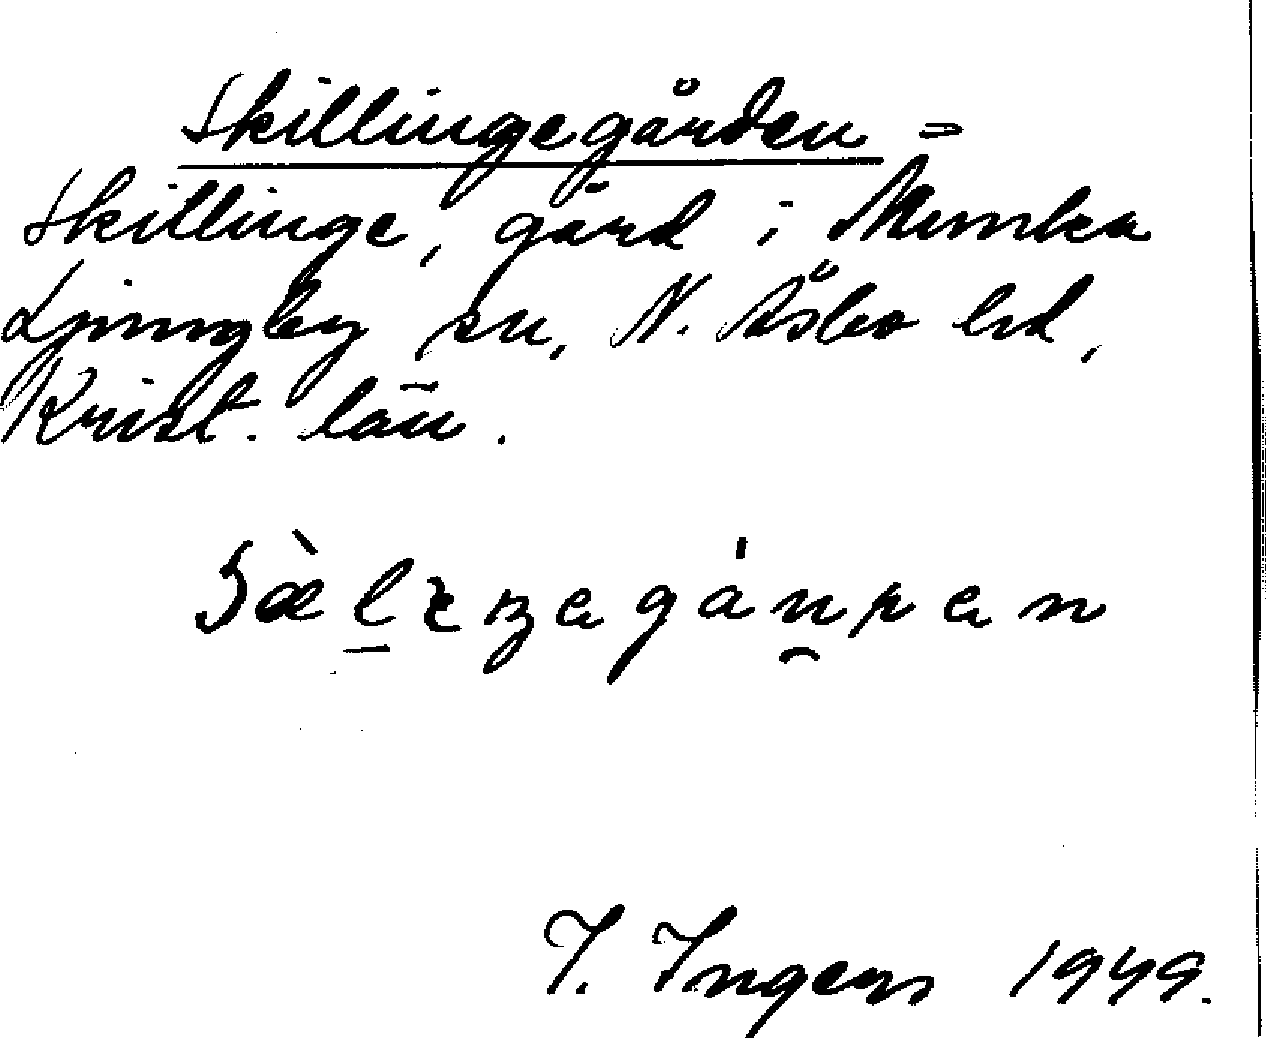 Skillingegården =
Skillinge, gård i Munka
Ljungby sn, N. Åsbo hd,
Krist. län.
I. Ingers 1949.